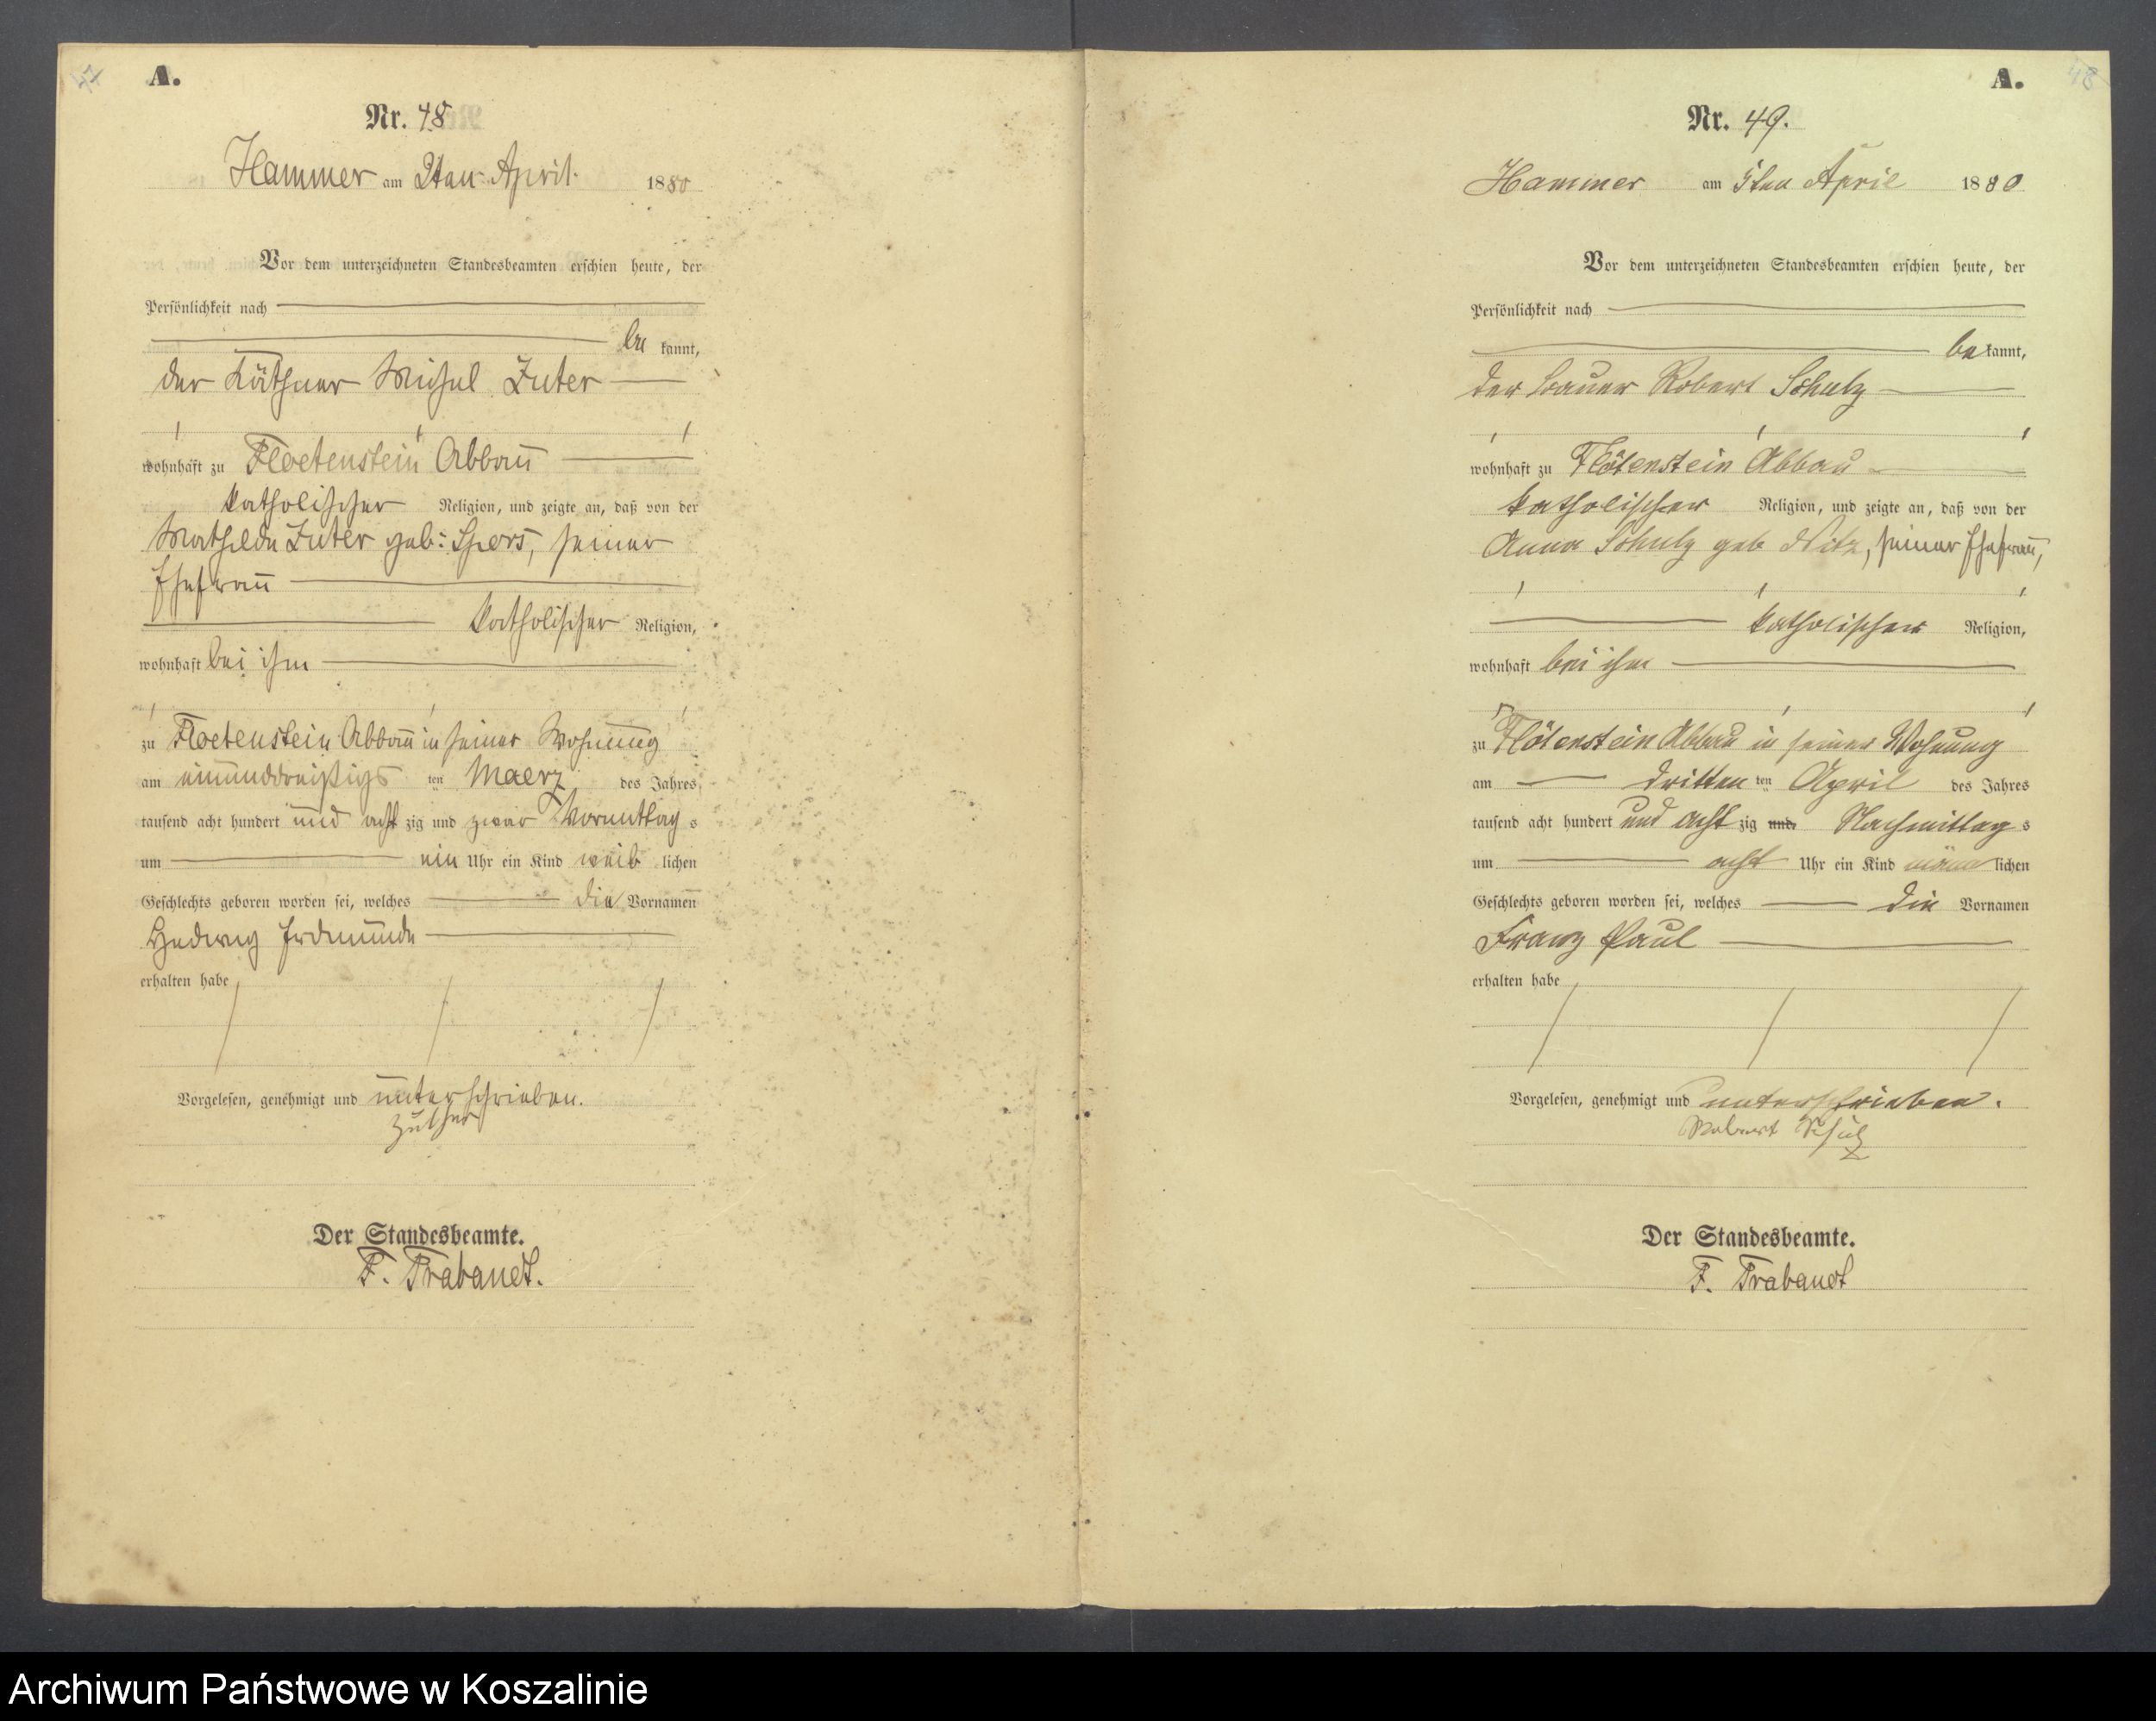 A.
Nr. 48
Hammer am 2ten April 1880
Vor dem unterzeichneten Standesbeamten erschien heute, der
Persönlichkeit nach
be kannt,
der Käthner Michel Zuter
wohnhaft zu Floetenstein Abbau
katholischer Religion, und zeigte an, daß von der
Mathilde Zuter geb: Spors, seiner
Ehefrau
katholischer Religion,
wohnhaft bei ihm
zu Floetenstein Abbau in seiner Wohnung
am einunddreißigs ten Maerz des Jahres
tausend acht hundert und acht zig und zwar Vormittag s
um ein Uhr ein Kind weib lichen
Geschlechts geboren worden sei, welches die Vornamen
Hedwig Erdmunde
erhalten habe
Vorgelesen, genehmigt und unterschrieben.
Züther
Der Standesbeamte.
F. Trabandt.
A.
48
Nr. 49.
Hammer am 5ten April 1880
Vor dem unterzeichneten Standesbeamten erschien heute, der
Persönlichkeit nach
be kannt,
der Bauer Robert Schulz
wohnhaft zu Flötenstein Abbau
katholischer Religion, und zeigte an, daß von der
Anna Schulz geb Nitz, seiner Ehefrau,
katholischer Religion,
wohnhaft bei ihm
zu Flötenstein Abbau in seiner Wohnung
am dritten ten April des Jahres
tausend acht hundert und acht zig und Nachmittag s
um acht Uhr ein Kind männ lichen
Geschlechts geboren worden sei, welches die Vornamen
Franz Paul
erhalten habe
Vorgelesen, genehmigt und unterschrieben.
Robert Schulz
Der Standesbeamte.
F. Trabandt
Archiwum Państwowe w Koszalinie